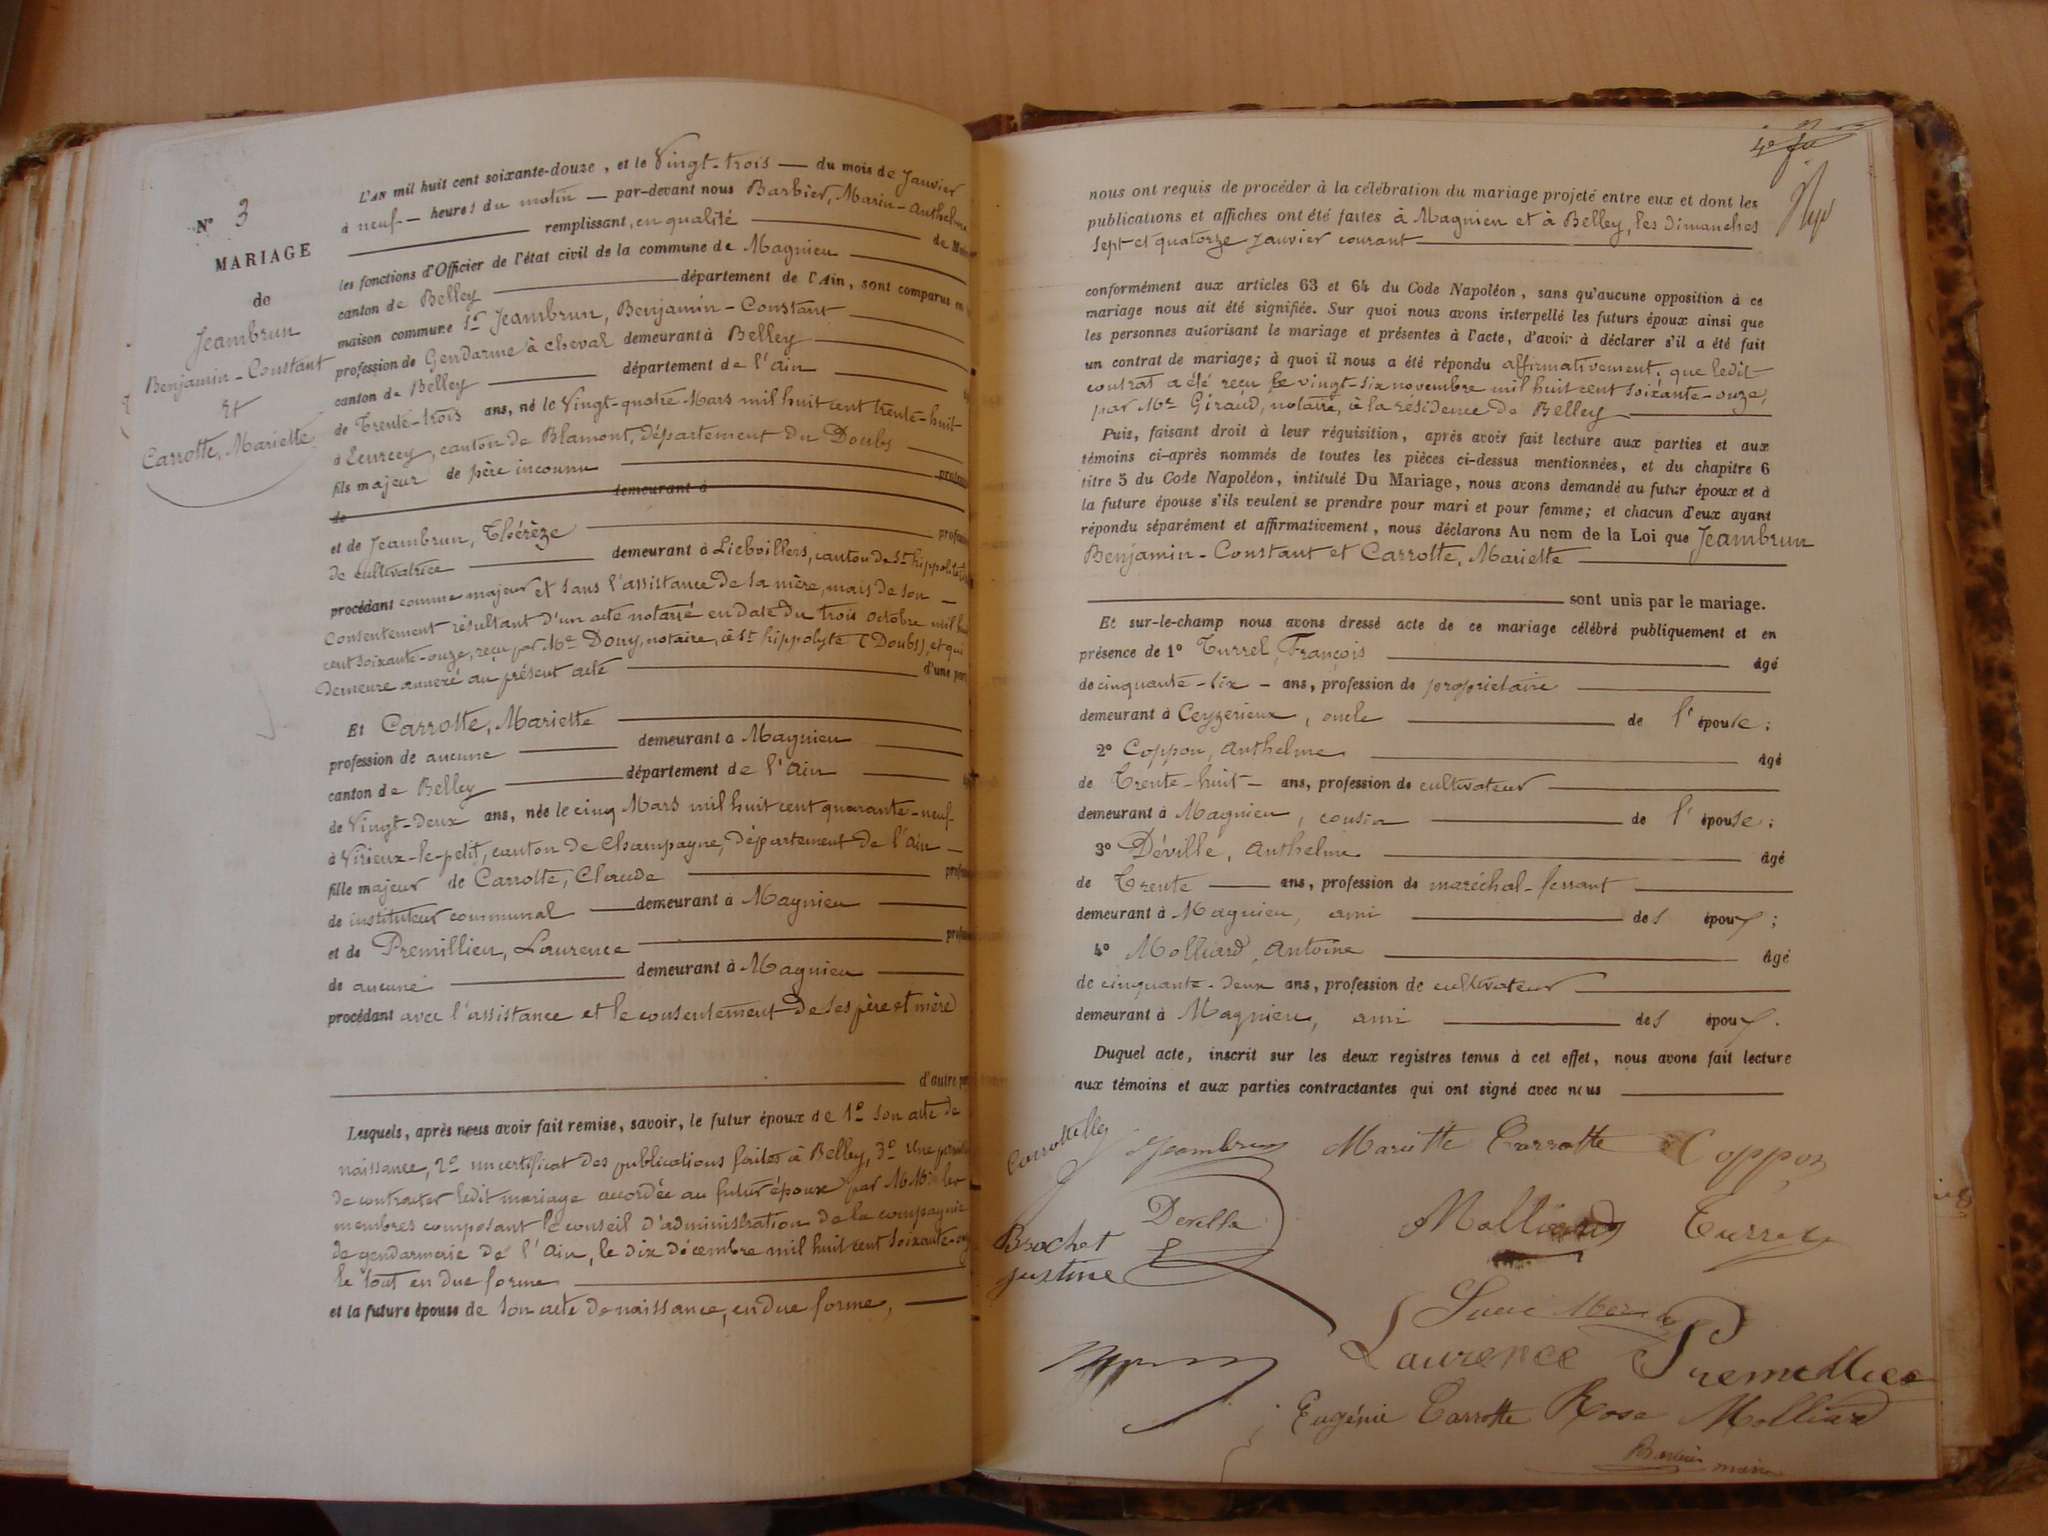 N° 3
MARIAGE
de
Jeambrun
Benjamin-Constant
et
Carrotte, Mariette
L'AN mil huit cent soixante-douze, et le Vingt-trois du mois de Janvier
à neuf heures du matin par-devant nous Barbier, Marin-Anthelme
remplissant, en qualité de
les fonctions d'Officier de l'état civil de la commune de Magnieu
canton de Belley département de l'Ain, sont comparus en
maison commune Sr Jeambrun, Benjamin-Constant
profession de Gendarme à cheval demeurant à Belley
canton de Belley département de l'Ain
de Trente-trois ans, né le Vingt-quatre Mars mil huit cent trente-huit
à Ecurcey, canton de Blamont, département du Doubs
fils majeur de père inconnu
de demeurant à
et de Jeambrun, Thérèze
de cultivatrice demeurant à Liebvillers, canton de St hippolite
procédant comme majeur et sans l'assistance de sa mère, mais de son
consentement résultant d'un acte notarié en date du trois octobre mil huit
cent soixante-onze, reçu par Me Douy, notaire, à St hippolyte (Doubs), et qui
demeure annexé au présent acte d'une part
Et Carrotte, Mariette
profession de aucune demeurant à Magnieu
canton de Belley département de l'Ain
de Vingt-deux ans, née le cinq Mars mil huit cent quarante-neuf
à Virieux-le-petit, canton de Champagne, département de l'Ain
fille majeur de Carrotte, Claude
de instituteur communal demeurant à Magnieu
et de Premillieu, Laurence
de aucune demeurant à Magnieu
procédant avec l'assistance et le consentement de ses père et mère
d'autre part
Lesquels, après nous avoir fait remise, savoir, le futur époux de 1° son acte de
naissance, 2° un certificat des publications faites à Belley, 3° Une
de contracter ledit mariage accordée au futur époux par MM. les
membres composant le conseil d'administration de la compagnie
de gendarmerie de l'Ain, le dix décembre mil huit cent soixante-onze
le tout en due forme
et la future épouse de son acte de naissance, en due forme,
nous ont requis de procéder à la célébration du mariage projeté entre eux et dont les
publications et affiches ont été faites à Magnieu et à Belley, les dimanches
sept et quatorze Janvier courant
conformément aux articles 63 et 64 du Code Napoléon, sans qu'aucune opposition à ce
mariage nous ait été signifiée. Sur quoi nous avons interpellé les futurs époux ainsi que
les personnes autorisant le mariage et présentes à l'acte, d'avoir à déclarer s'il a été fait
un contrat de mariage; à quoi il nous a été répondu affirmativement, que ledit
contrat a été reçu le vingt-six novembre mil huit cent soixante-onze,
par Me Giraud, notaire, à la résidence de Belley
Puis, faisant droit à leur réquisition, après avoir fait lecture aux parties et aux
témoins ci-après nommés de toutes les pièces ci-dessus mentionnées, et du chapitre 6
titre 5 du Code Napoléon, intitulé Du Mariage, nous avons demandé au futur époux et à
la future épouse s'ils veulent se prendre pour mari et pour femme; et chacun d'eux ayant
répondu séparément et affirmativement, nous déclarons Au nom de la Loi que Jeambrun
Benjamin-Constant et Carrotte, Mariette
sont unis par le mariage.
Et sur-le-champ nous avons dressé acte de ce mariage célébré publiquement et en
présence de 1° Turrel, François âgé
de cinquante-six ans, profession de propriétaire
demeurant à Ceyzerieux, oncle de l'épouse;
2° Coppon, Anthelme âgé
de Trente-huit ans, profession de cultivateur
demeurant à Magnieu, cousin de l'épouse;
3° Déville, Anthelme âgé
de Trente ans, profession de maréchal-ferrant
demeurant à Magnieu, ami des époux;
4° Molliard, Antoine âgé
de cinquante-deux ans, profession de cultivateur
demeurant à Magnieu, ami des époux.
Duquel acte, inscrit sur les deux registres tenus à cet effet, nous avons fait lecture
aux témoins et aux parties contractantes qui ont signé avec nous
Jeambrun Mariette Carrotte Coppon
Deville Molliard Turrel
Brochet
Justine
Laurence Premillieu
Eugénie Carrotte Rose Molliard
Barbier maire